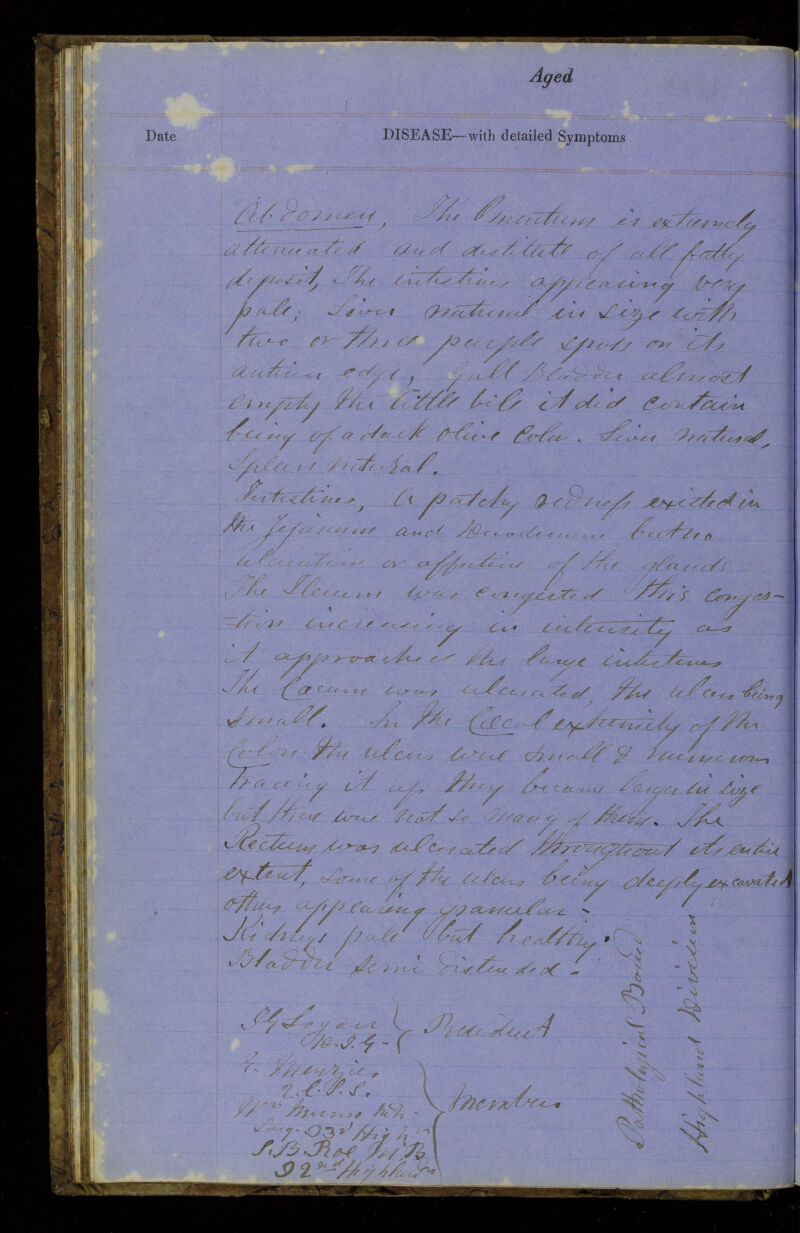 Aged
Date
DISEASE—with detailed Symptoms
Abdomen, The Omentum is extremely
attenuated and destitute of all fatty
deposit, The intestines appearing very
pale; Liver natural in size with
two or three purple spots on its
anterior edge, Gall Bladder almost
empty the little bile it did contain
being of a dark olive Color. Liver natural,
Spleen natural.
Intestines, A patchy redness existed in
the Jejunum and Duodenum but no
ulceration or affection of the glands
The Ileum was congested this conges-
-tion increasing in intensity as
it approached the large intestines
The Cacum was ulcerated, the ulcers being
small. In the Cœcal extremity of the
Colon the ulcers were small & numerous
tracing it up they became larger in size
but there were not so many of them. The
Rectum was ulcerated throughout its entire
extent, some of the ulcers being deeply excavated
others appearing granular.
Kidneys pale but healthy.
Bladder semi distended -
TG Logan
D.I.G - President
Menzies
2.C.P.S.
Wm Munro MD
Surg. 93d Highrs
S.B. Roe MB
92nd Highlanders
Members
Pathological Board
Highland Division